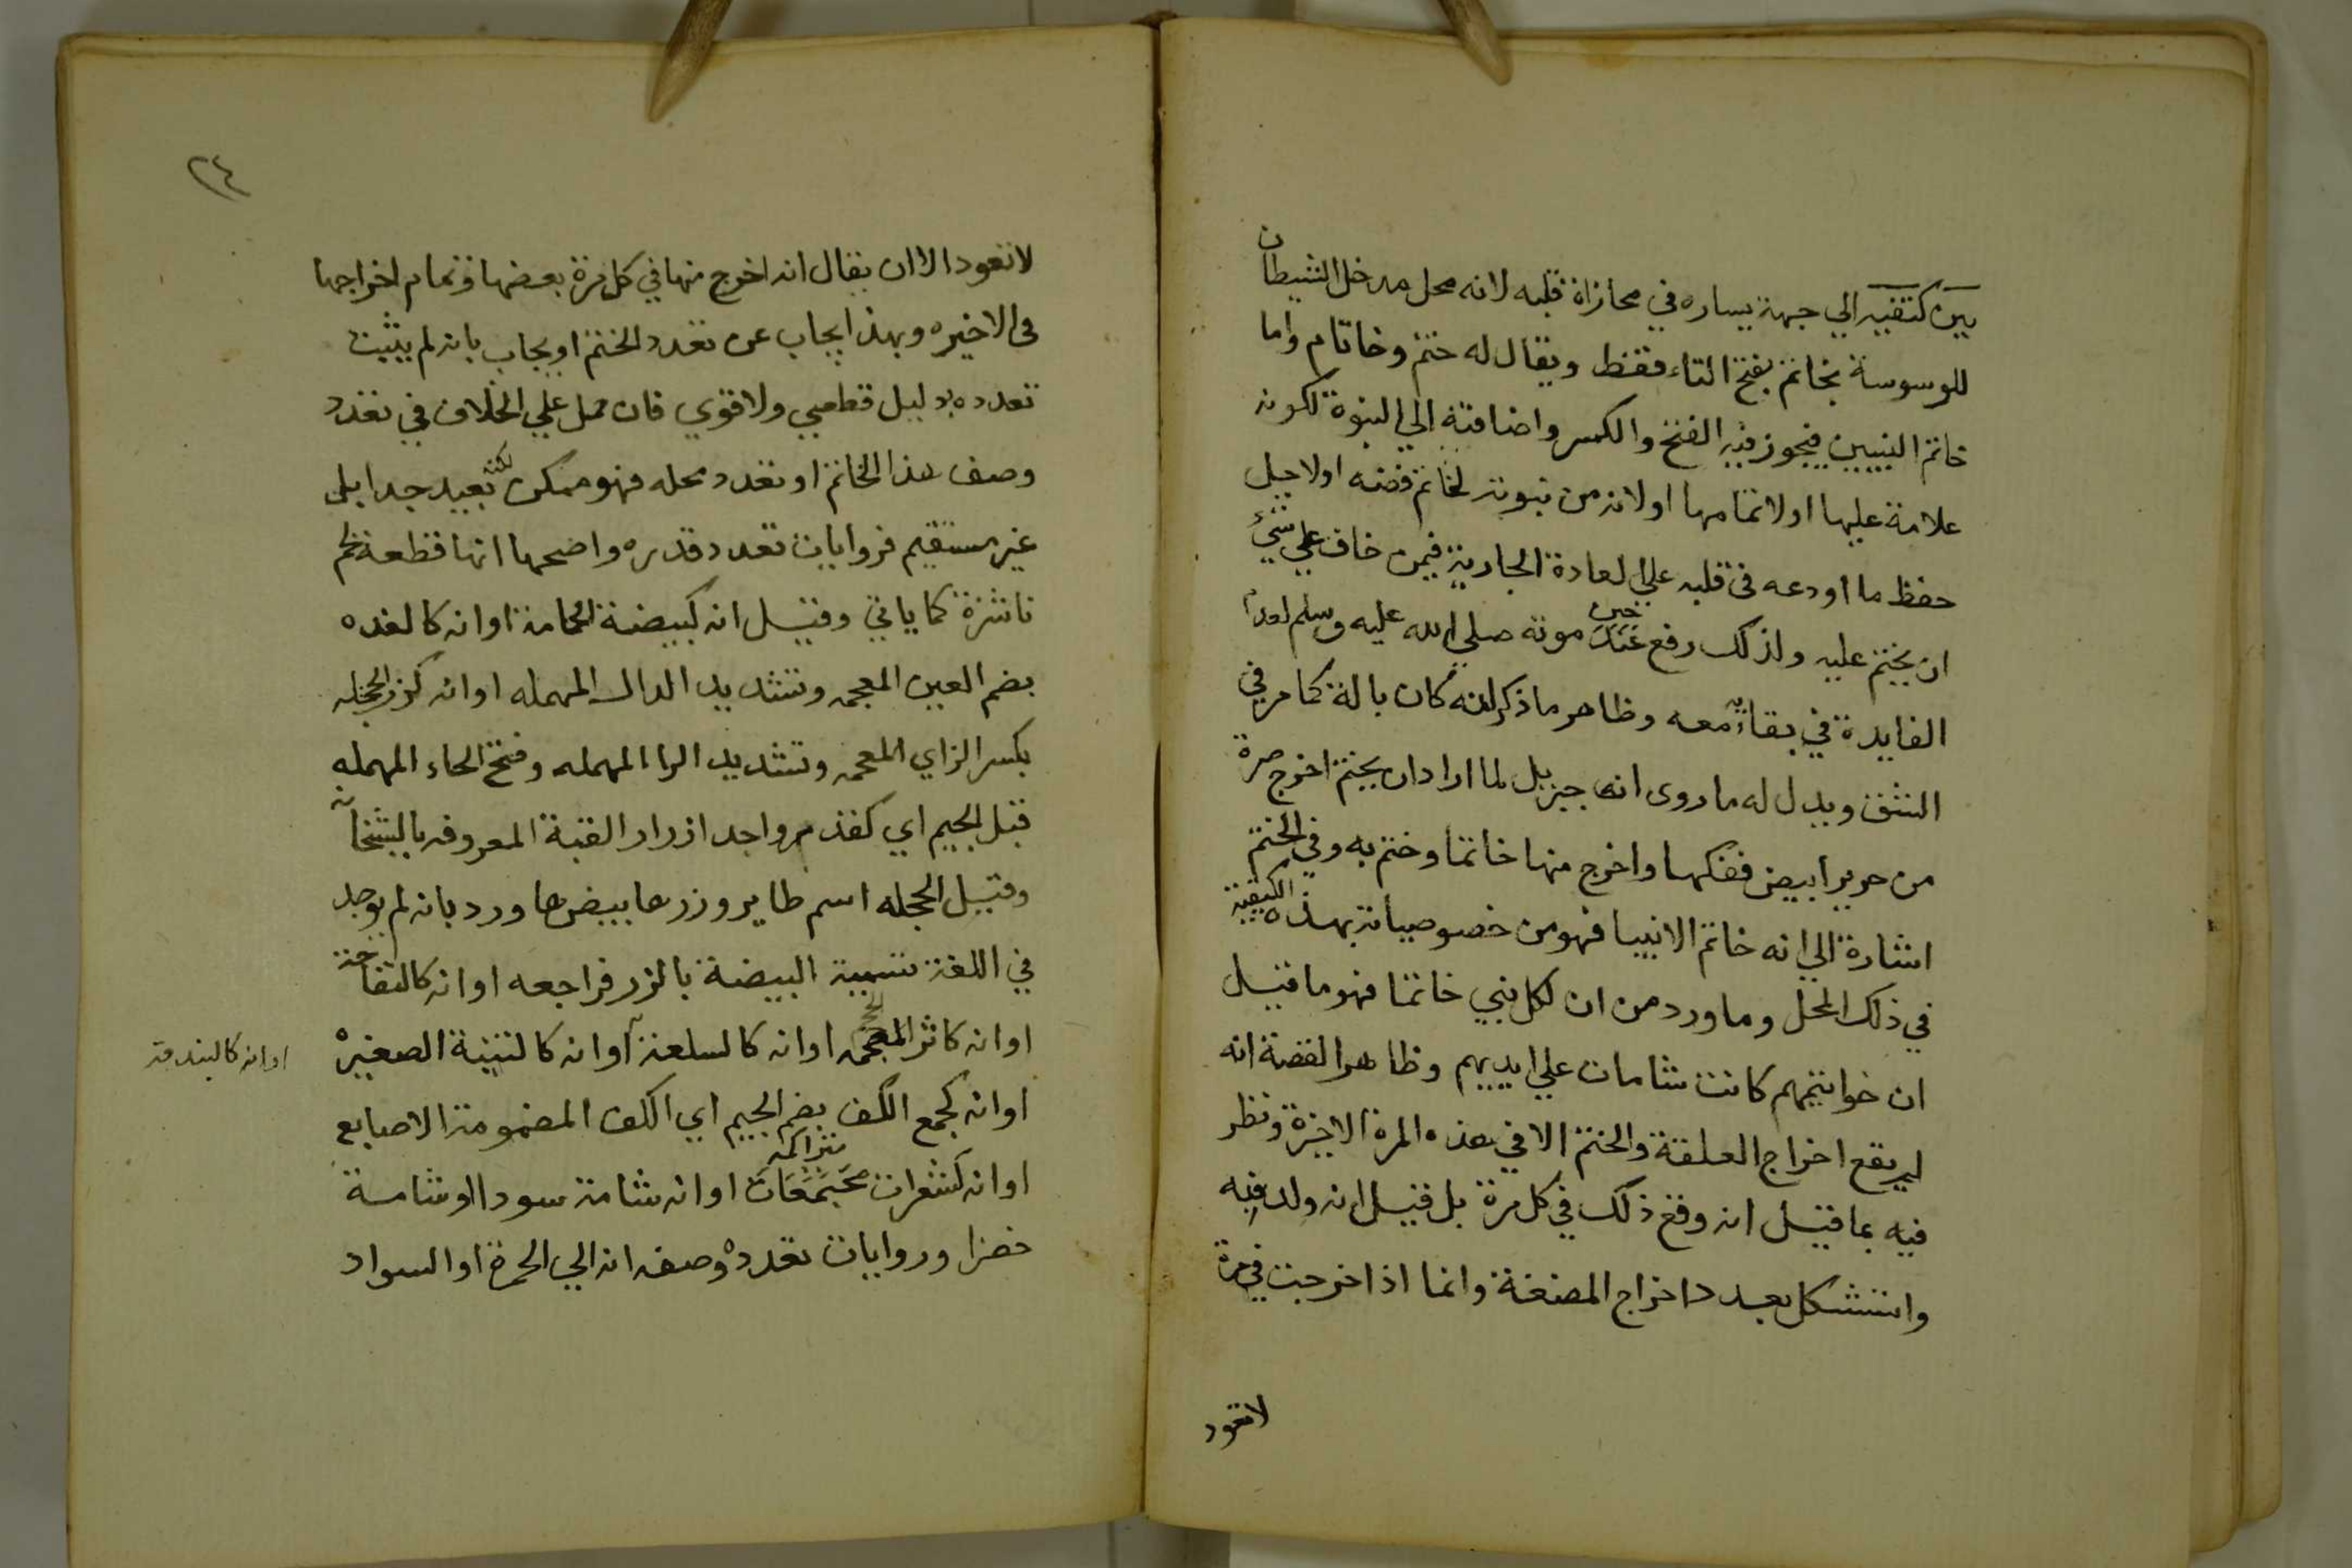 بين كتفيه الي جهة يساره في محاذاة قلبه لانه محل مدخل الشيطان
للوسوسة بخاتم بفتح التاء فقط ويقال له ختم وخاتام واما
خاتم النبيين فيجوز فيه الفتح والكسر واضافته الي النبوة لكونه
علامة عليها او لاتمامها او لانه من نبوته لخاتم فضه او لاجل
حفظ ما اودعه في قلبه علي العادة الجارية فيمن خاف علي شيء
ان يختم عليه ولذلك رفع عند حين موته صلي الله عليه وسلم لعدم
الفايدة في بقائه معه وظاهر ما ذكر انه كان بالة كما مر في
الشق ويدل له ما روي ان جبريل لما اراد ان يختم اخرج صرة
من حرير ابيض ففكها واخرج منها خاتما وختم به وفي الختم
اشارة الي انه خاتم الانبيا فهو من خصوصياته بهذه الكيفية
في ذلك المحل وما ورد من ان لكل نبي خاتما فهو ما قيل
ان خواتيمهم كانت شامات علي ايديهم وظاهر القصة انه
لم يقع اخراج العلقة والختم الا في هذه المرة الاخيرة ونظر
فيه بما قيل انه وقع ذلك في كل مرة بل قيل انه ولد فيه
واستشكل تعدد اخراج المضغة وانما اذا اخرجت في مرة
لا تعود
٢٤
لا تعود الا ان يقال انه اخرج منها في كل مرة بعضها وتمام اخراجها
في الاخيره وبهذا يجاب عن تعدد الختم او يجاب بانه لم يثبت
تعدده بدليل قطعي ولا قوي فان حمل علي الخلاف في تعدد
وصف هذا الخاتم او تعدد محله فهو ممكن لكنه بعيد جدا بل
غير مستقيم فروايات تعدد قدره واصحها انها قطعة لحم
ناشزة كما ياتي وقيل انه كبيضة الحمامة او انه كالغده
بضم الغين المعجمه وتشديد الدال المهمله او انه كزر الحجله
بكسر الزاي المعجمه وتشديد الرا المهمله وفتح الحاء المهمله
قبل الجيم اي كقدر واحد ازرار القبة المعروفه بالبشخانه
وقيل الحجله اسم طاير وزرها بيضها ورد بانه لم يوجد
في اللغة تسمية البيضة بالزر فراجعه او انه كالتفاحة
او انه كاثر المحجمه او انه كالسلعة او انه كالتينة الصغيره
او انه كالبندقة
او انه كجمع الكف بضم الجيم اي الكف المضمومة الاصابع
او انه كشعرات مجتمعات متراكمه او انه شامة سودا او شامة
خضرا وروايات تعدد وصفه انه الي الحمرة او السواد